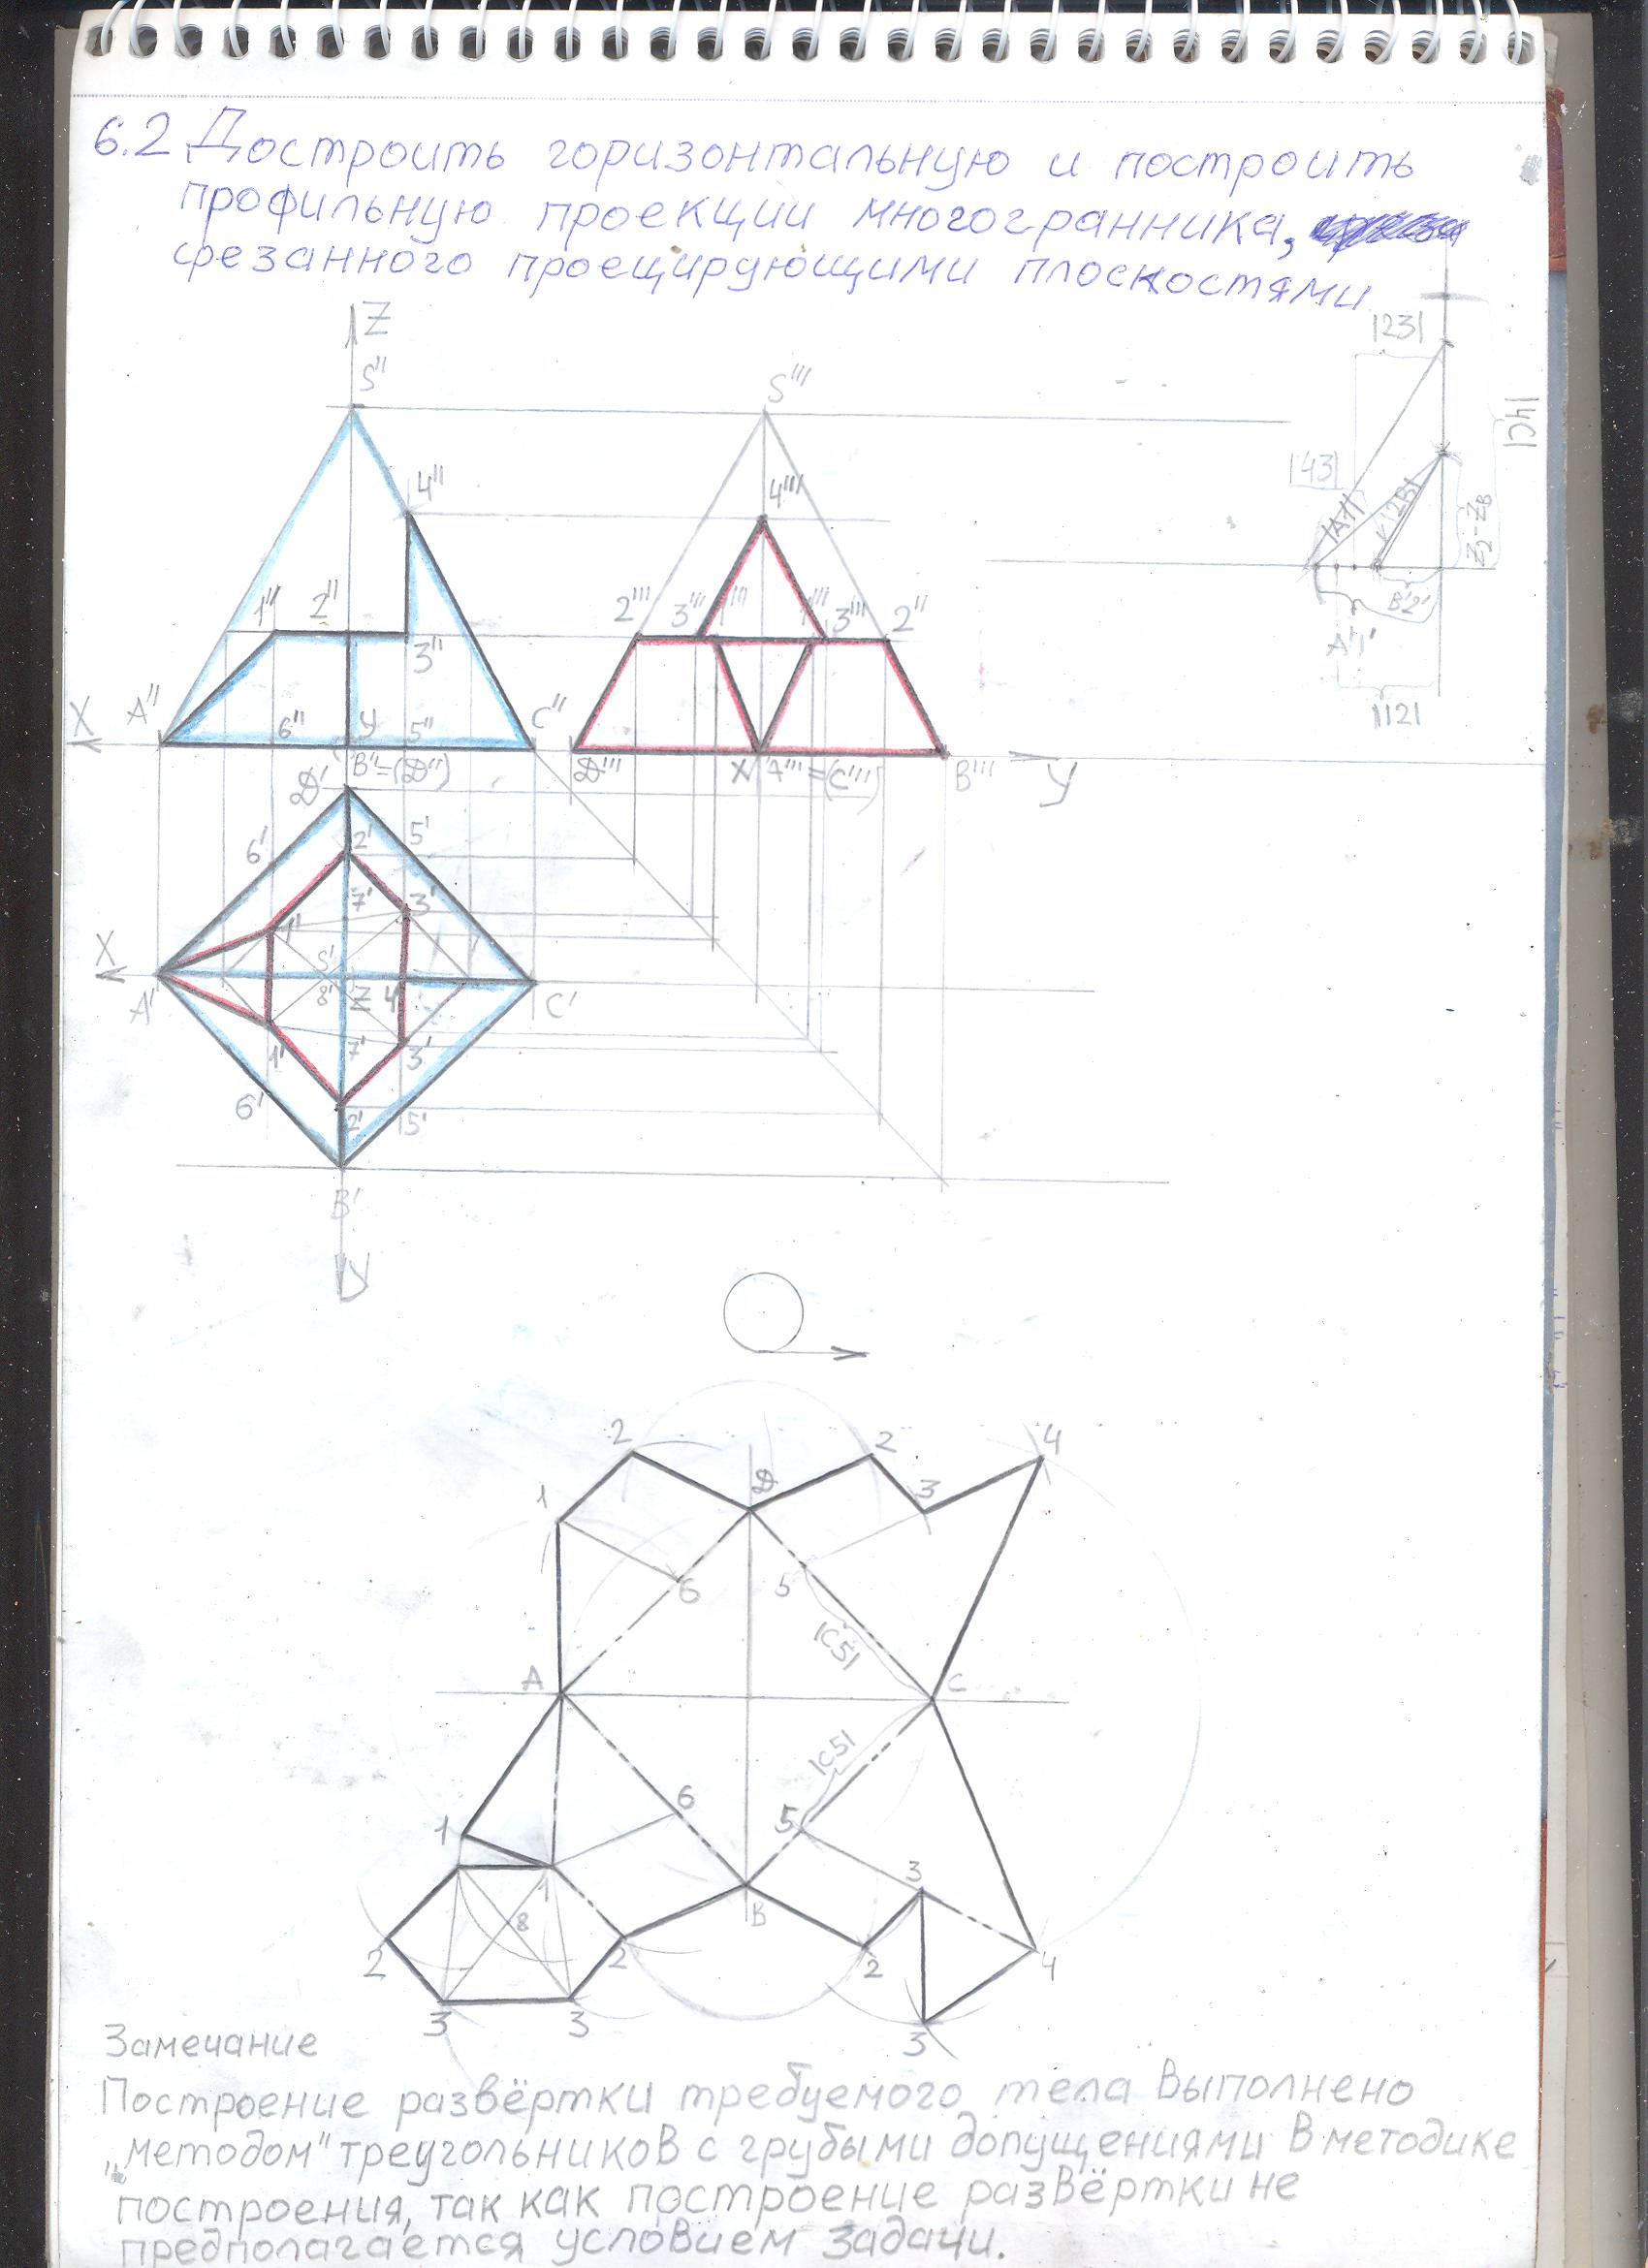 6.2 Достроить горизонтальную и построить
профильную проекции многогранника,
срезанного проецирующими плоскостями
Z
S'' S'''
|23|
|4C|
4'' 4'''
|43|
|A1| |2B|
Z₂-Z_B
1'' 2'' 2''' 3''' 1''' 1''' 3''' 2''
3''
B'2'
A'1'
|12|
X A'' 6'' У 5'' C''
B''=(D'') D''' X A'''=(C''') B''' У
D'
6' 2' 5'
7' 3'
1'
X S'
8' Z 4'
A' C'
1' 7' 3'
6' 2' 5'
B'
У
2 D 2 4
1 3
6 5
|C5|
A C
|C5|
6
1 5
1 3
8 B
2 2 2 4
3 3 3
Замечание
Построение развёртки требуемого тела выполнено
„методом" треугольников с грубыми допущениями в методике
построения, так как построение развёртки не
предполагается условием задачи.